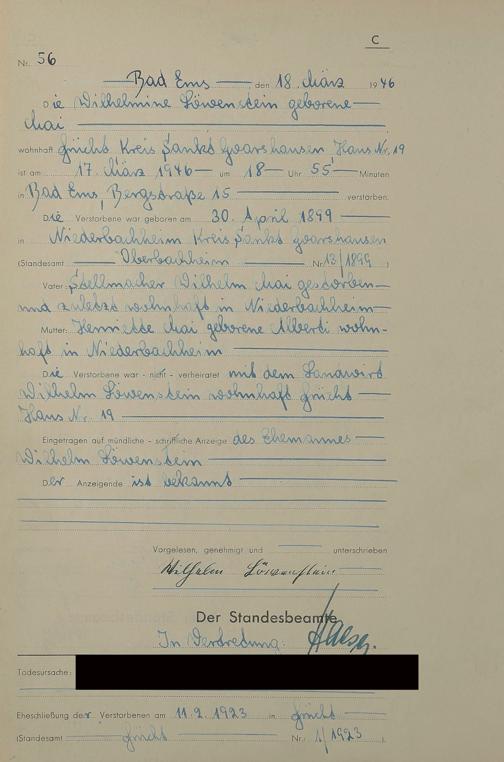 C
Nr. 56
Bad Ems den 18. März 1946
Die Wilhelmine Löwenstein geborene
Mai
wohnhaft Kreis Sankt Goarshausen Haus Nr. 19
ist am 17. März 1946 um 18 Uhr 55 Minuten
in Bad Ems, Bergstraße 15 verstorben.
Die Verstorbene war geboren am 30. April 1899
in Niederbachheim Kreis Sankt Goarshausen
(Standesamt Oberbachheim Nr. 13/1899)
Vater: Stellmacher Wilhelm Mai gestorben
und zuletzt wohnhaft in Niederbachheim
Mutter: Henriette Mai geborene Alberti wohn-
haft in Niederbachheim
Die Verstorbene war - nicht - verheiratet mit dem Landwird
Wilhelm Löwenstein wohnhaft
Haus Nr. 19
Eingetragen auf mündliche - schriftliche Anzeige des Ehemannes
Wilhelm Löwenstein
Der Anzeigende ist bekannt
Vorgelesen, genehmigt und unterschrieben
Wilhelm Löwenstein
Der Standesbeamte
In Vertretung:
Todesursache:
Eheschließung der Verstorbenen am 11.2.1923 in
(Standesamt Nr. 1/1923)